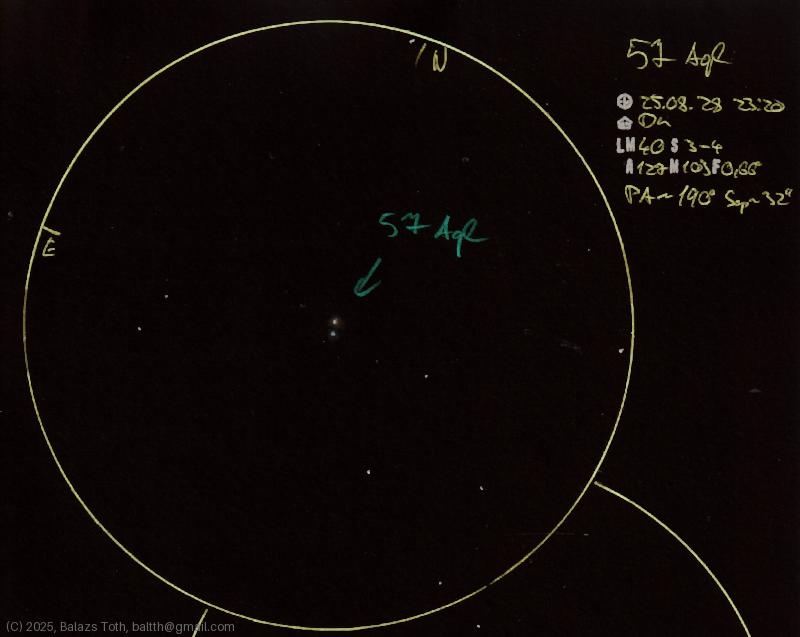 57 Aql
25.08.28 23:20
Du
LM 40 S 3-4
A 127 M 103 F 0,66°
PA~190° Sep~32"
N
E
57 Aql
(C) 2025, Balazs Toth, baltth@gmail.com